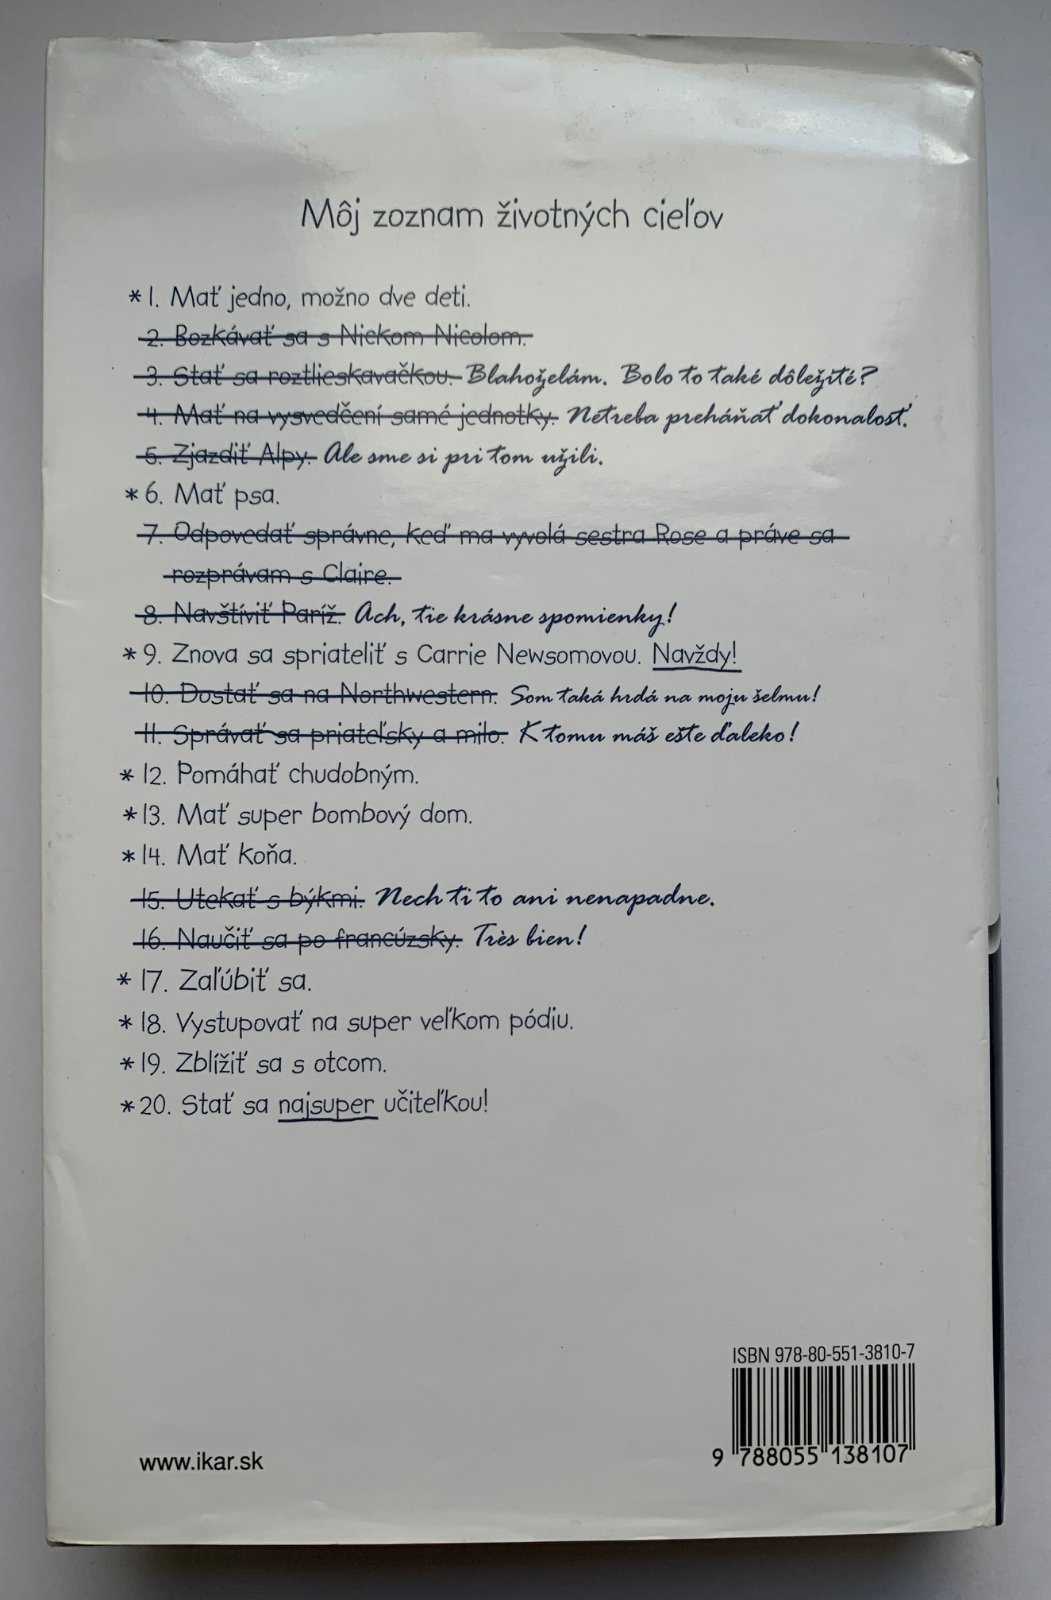 Môj zoznam životných cieľov
* 1. Mať jedno, možno dve deti.
2. Bozkávať sa s Nickom Nicolom.
3. Stať sa roztlieskavačkou. Blahoželám. Bolo to také dôležité?
4. Mať na vysvedčení samé jednotky. Netreba preháňať dokonalosť.
5. Zjazdiť Alpy. Ale sme si pri tom užili.
* 6. Mať psa.
7. Odpovedať správne, keď ma vyvolá sestra Rose a práve sa
rozprávam s Claire.
8. Navštíviť Paríž. Ach, tie krásne spomienky!
* 9. Znova sa spriateliť s Carrie Newsomovou. Navždy!
10. Dostať sa na Northwestern. Som taká hrdá na moju šelmu!
11. Správať sa priateľsky a milo. K tomu máš ešte ďaleko!
* 12. Pomáhať chudobným.
* 13. Mať super bombový dom.
* 14. Mať koňa.
15. Utekať s býkmi. Nech ti to ani nenapadne.
16. Naučiť sa po francúzsky. Très bien!
* 17. Zaľúbiť sa.
* 18. Vystupovať na super veľkom pódiu.
* 19. Zblížiť sa s otcom.
* 20. Stať sa najsuper učiteľkou!
ISBN 978-80-551-3810-7
9 788055 138107
www.ikar.sk